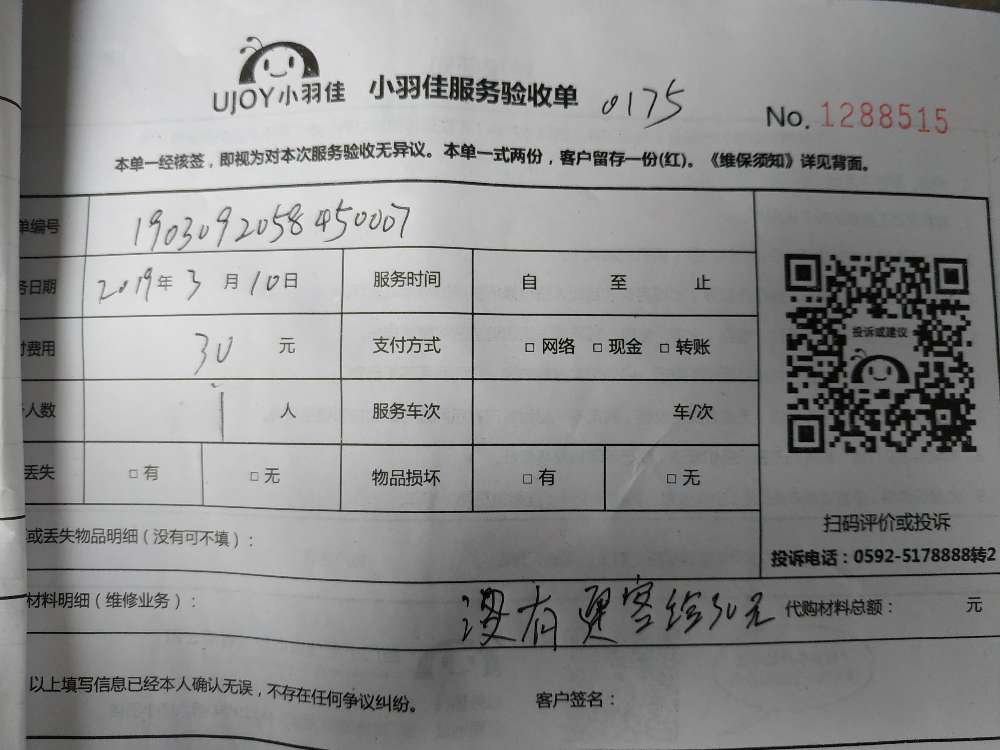 UJOY小羽佳 小羽佳服务验收单 0175 No. 1288515
本单一经核签，即视为对本次服务验收无异议。本单一式两份，客户留存一份(红)。《维保须知》详见背面。
单编号 1903092058450007
务日期 2019年3月10日 服务时间 自 至 止
付费用 30 元 支付方式 □ 网络 □ 现金 □ 转账
人数 1 人 服务车次 车/次
丢失 □ 有 □ 无 物品损坏 □ 有 □ 无
投诉或建议
扫码评价或投诉
投诉电话：0592-5178888转2
或丢失物品明细（没有可不填）：
材料明细（维修业务）： 没有 客给30元 代购材料总额： 元
以上填写信息已经本人确认无误，不存在任何争议纠纷。 客户签名：